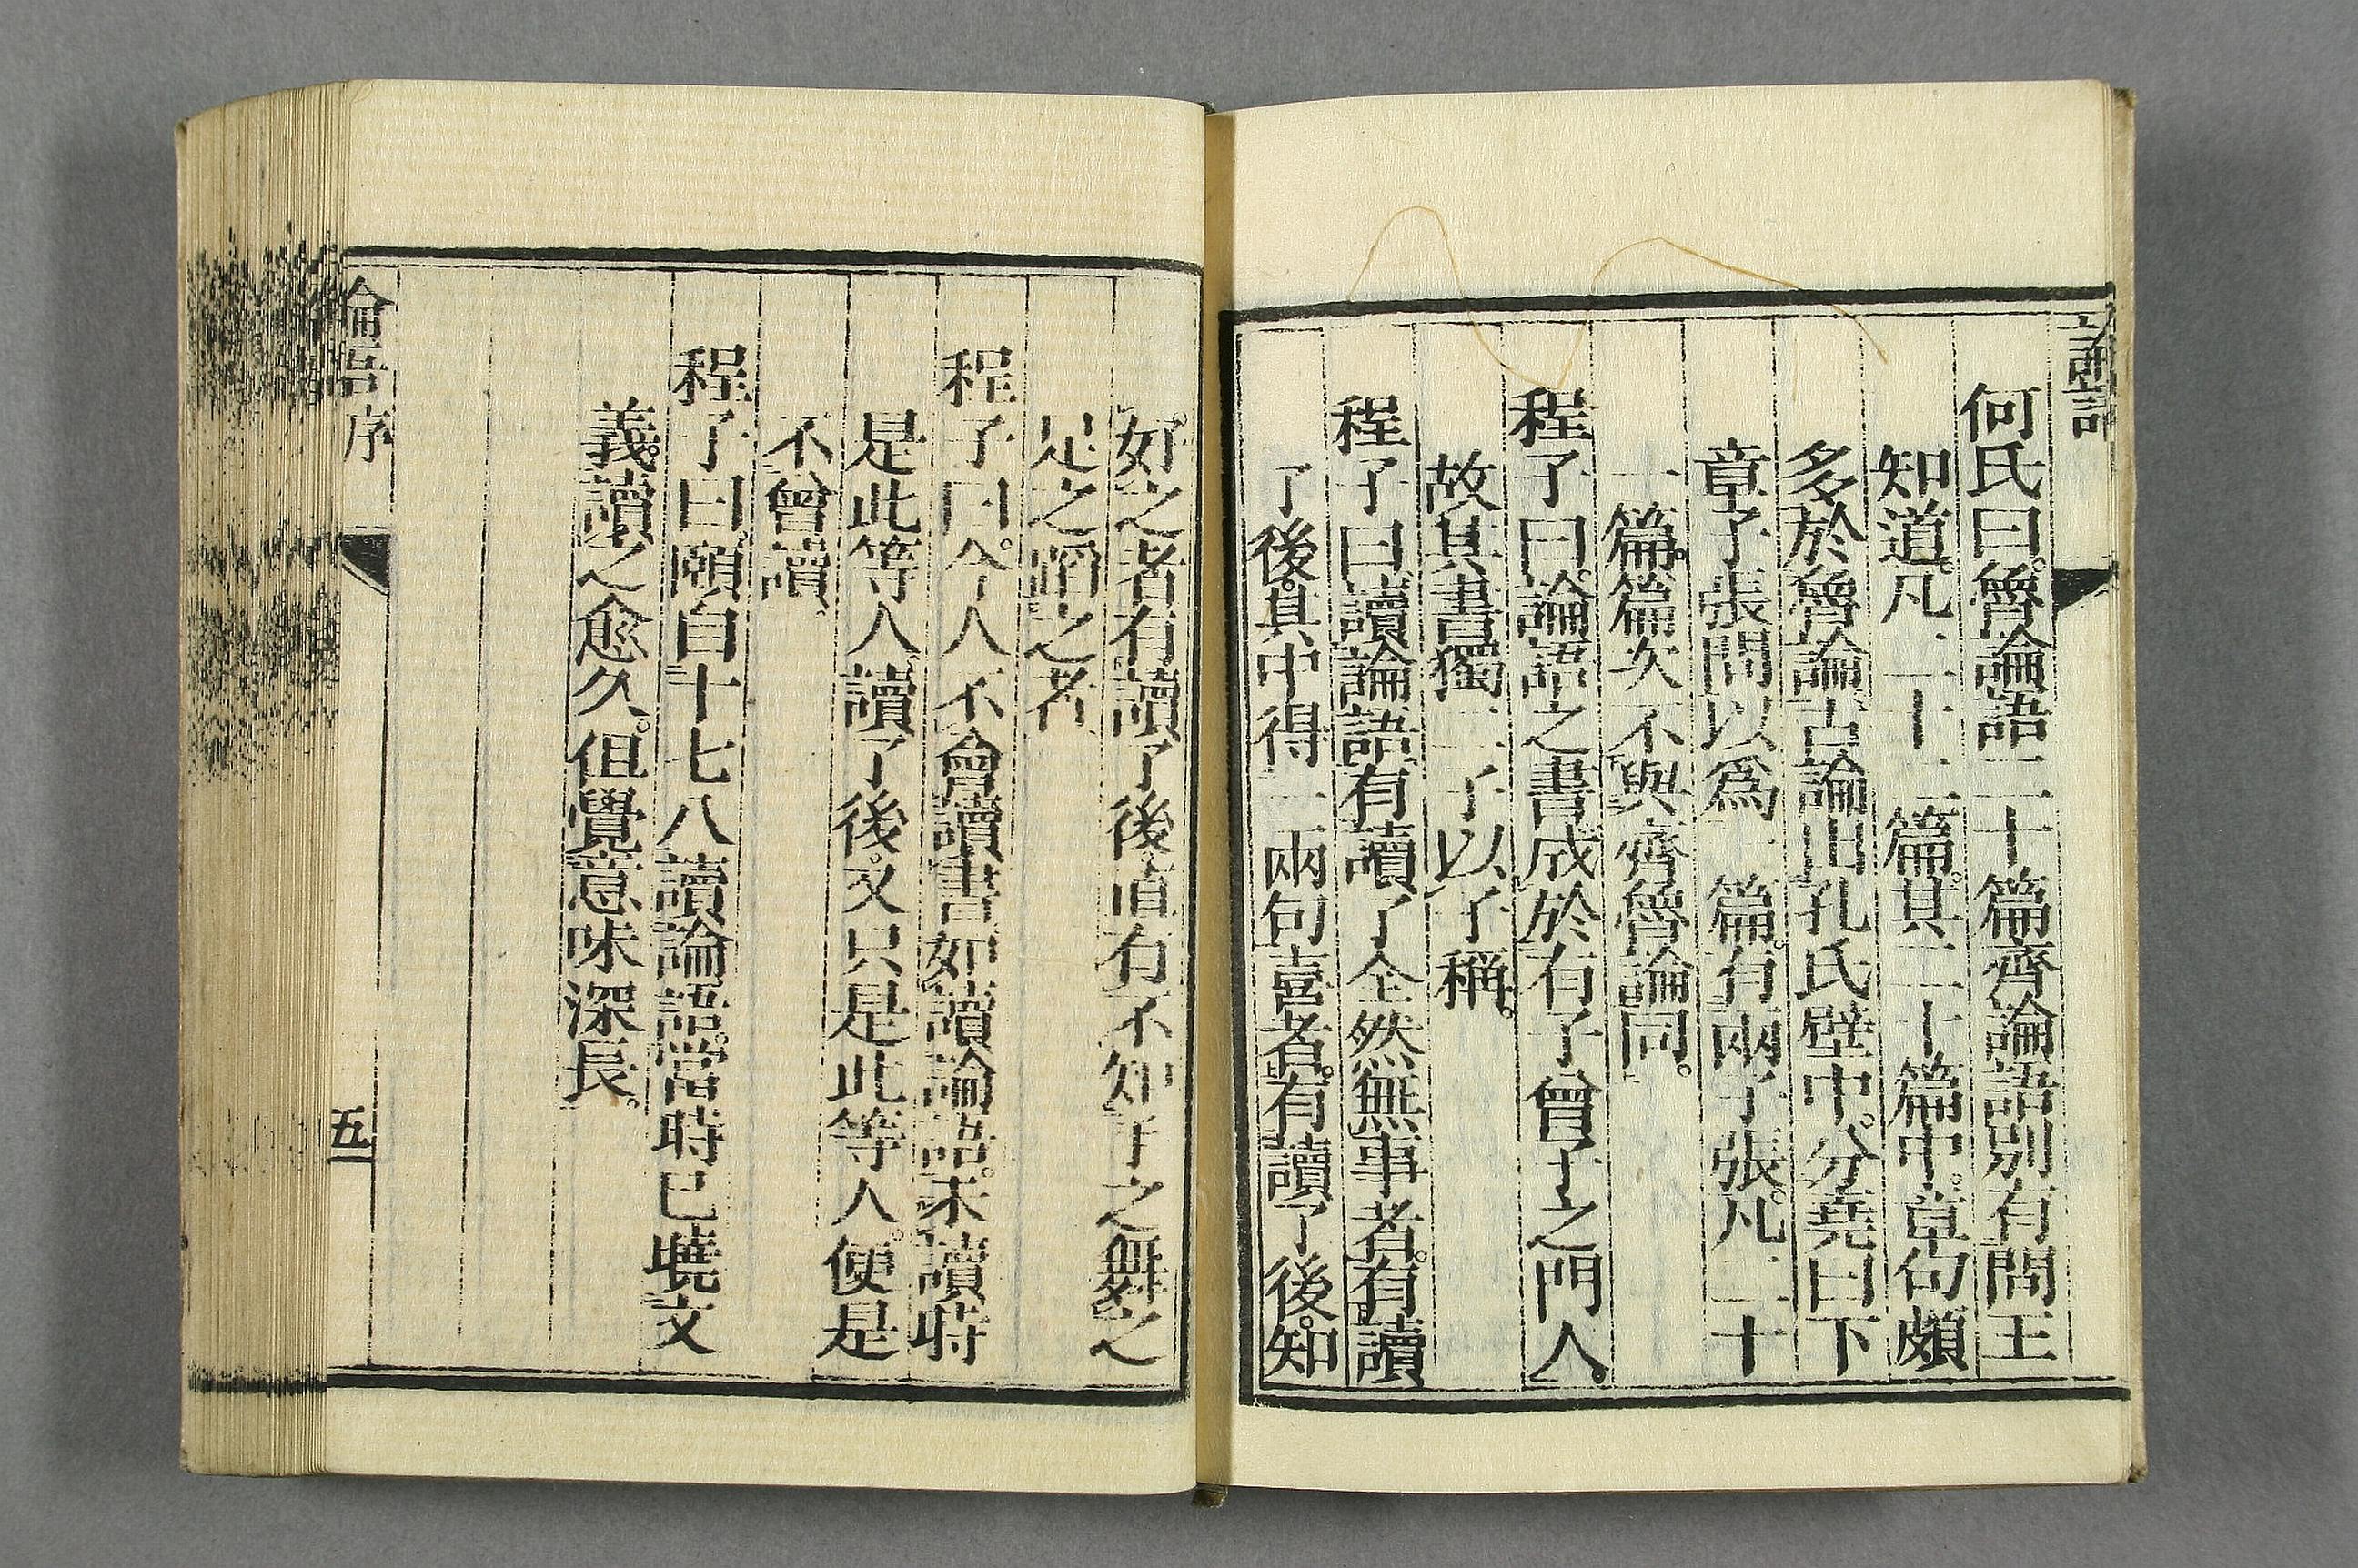 何氏曰。魯論語二十篇齊論語別有問王
知道。凡二十二篇。其二十篇中。章句頗
多於魯論。古論出孔氏壁中。分堯曰下
章子張問以爲一篇。有兩子張。凡二十
一篇。篇次不與齊魯論同。
程子曰。論語之書成於有子曾子之門人。
故其書獨二子以子稱。
程子曰。讀論語。有讀了全然無事者。有讀
了後。其中得一兩句喜者。有讀了後。知
好之者。有讀了後。直有不知手之舞之
足之蹈之者。
程子曰。今人不會讀書。如讀論語。未讀時
是此等人。讀了後。又只是此等人。便是
不曾讀。
程子曰。頤自十七八讀論語。當時已曉文
義。讀之愈久。但覺意味深長。
論語序
五